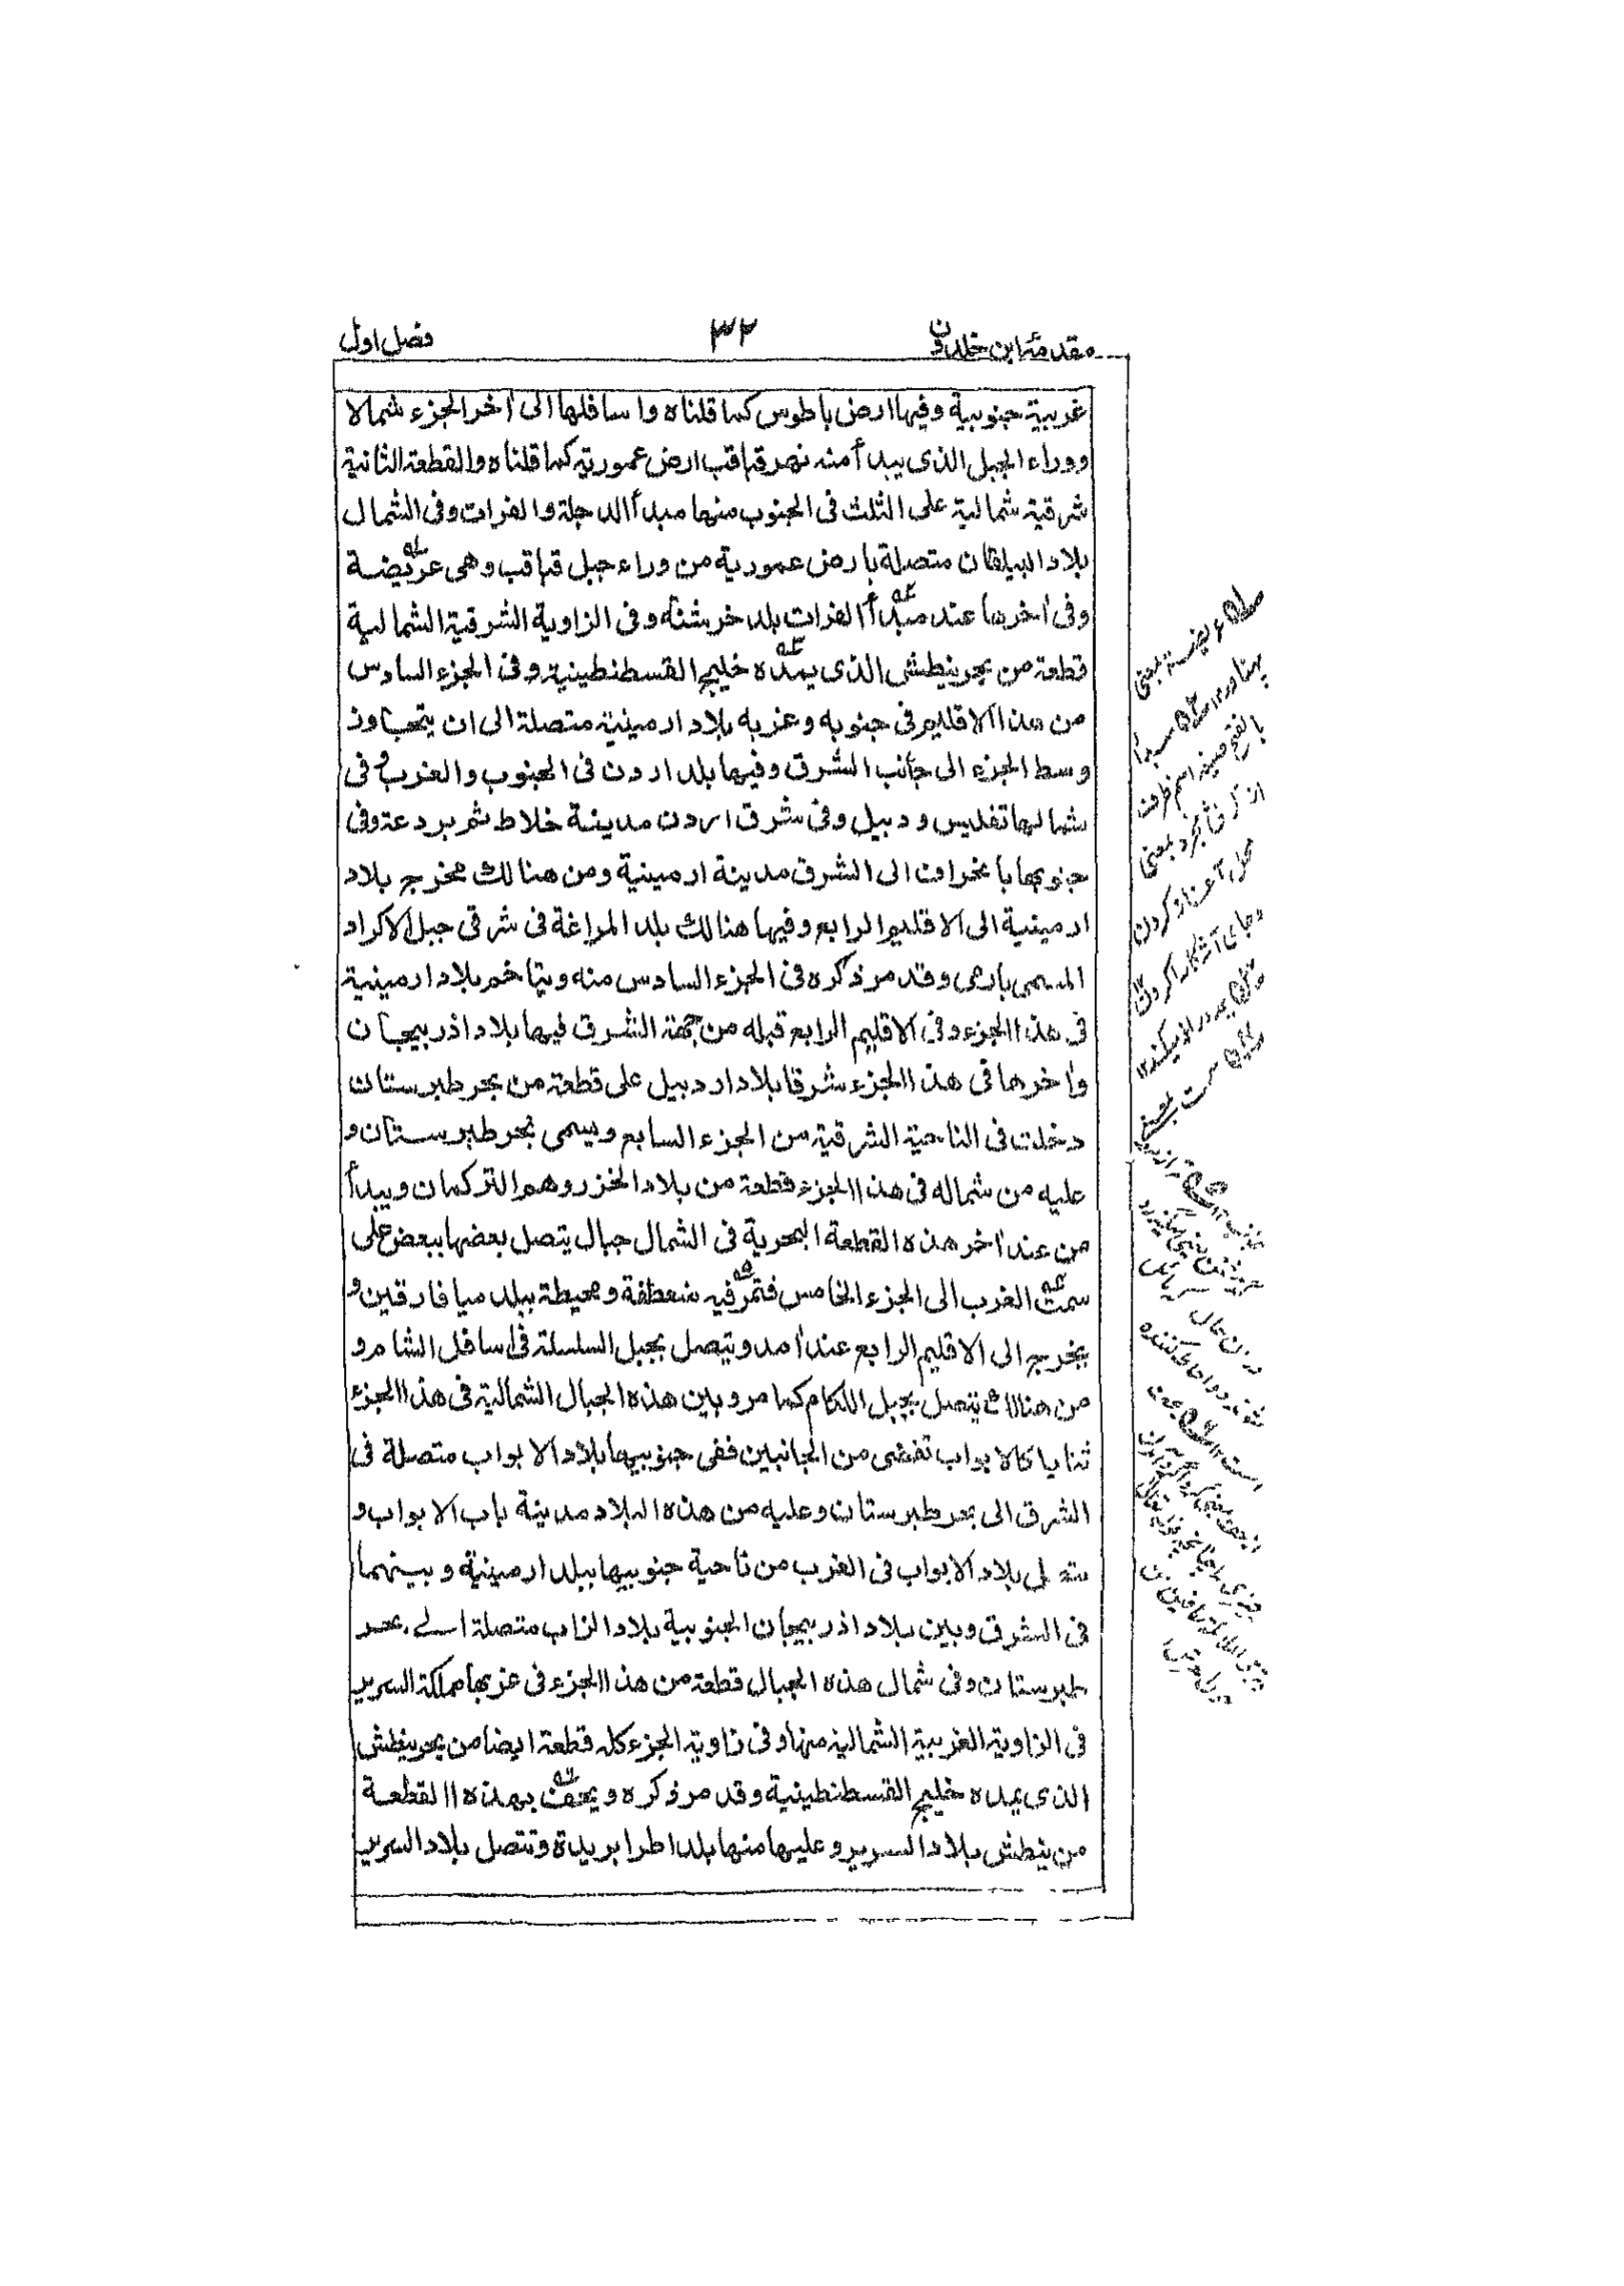 مقدمۂ ابن خلدون ۳۲ فصل اول
غربية جنوبية وفيها ارض باطوس كما قلناه واسافلها الى اٰخر الجزء شمالا
ووراء الجبل الذى يبدأ منه نهر قباقب ارض عمورية كما قلناه والقطعة الثانية
شرقية شمالية على الثلث فى الجنوب منها مبدأ الدجلة والفرات وفى الشمال
بلاد البيلقان متصلة بارض عمورية من وراء جبل قباقب وهى عريضة
وفى اٰخرها عند مبدأ الفرات بلد خرشنة وفى الزاوية الشرقية الشمالية
قطعة من بحر نيطش الذى يمده خليج القسطنطينية وفى الجزء السادس
من هذا الاقليم فى جنوبه وغربه بلاد ارمينية متصلة الى ان يتجاوز
وسط الجزء الى جانب الشرق وفيها بلد اردن فى الجنوب والغرب وفى
شمالها تفليس ودبيل وفى شرق اردن مدينة خلاط ثم بردعة وفى
جنوبها بانحراف الى الشرق مدينة ارمينية ومن هنالك مخرج بلاد
ارمينية الى الاقليم الرابع وفيها هنالك بلد المراغة فى شرقى جبل الاكراد
المسمى بارمى وقد مر ذكره فى الجزء السادس منه ويتاخم بلاد ارمينية
فى هذا الجزء وفى الاقليم الرابع قبله من جهة الشرق فيها بلاد اذربيجان
واٰخرها فى هذا الجزء شرقا بلاد اردبيل على قطعة من بحر طبرستان
دخلت فى الناحية الشرقية من الجزء السابع ويسمى بحر طبرستان و
عليه من شماله فى هذا الجزء قطعة من بلاد الخزر وهم التركمان ويبدأ
من عند اٰخر هذه القطعة البحرية فى الشمال جبال يتصل بعضها ببعض على
سمت الغرب الى الجزء الخامس فتمر فيه منعطفة ومحيطة ببلد ميافارقين و
يخرج الى الاقليم الرابع عند اٰمد ويتصل بجبل السلسلة فى اسافل الشام و
من هنالك يتصل بجبل اللكام كما مر وبين هذه الجبال الشمالية فى هذا الجزء
ثنايا كالابواب تفضى من الجانبين ففى جنوبيها بلاد الابواب متصلة فى
الشرق الى بحر طبرستان وعليه من هذه البلاد مدينة باب الابواب و
تتصل بلاد الابواب فى الغرب من ناحية جنوبيها ببلد ارمينية وبينهما
فى الشرق وبين بلاد اذربيجان الجنوبية بلاد الزاب متصلة الى بحر
طبرستان وفى شمال هذه الجبال قطعة من هذا الجزء فى غربها مملكة السرير
فى الزاوية الغربية الشمالية منها وفى زاوية الجزء كله قطعة ايضا من بحر نيطش
الذى يمده خليج القسطنطينية وقد مر ذكره ويحف بهذه القطعة
من نيطش بلاد السرير وعليها منها بلد اطرابريدة وتتصل بلاد السرير
عريضة بمعنى
بالفتح صيغه اسم ظرف
محل آغاز كردن